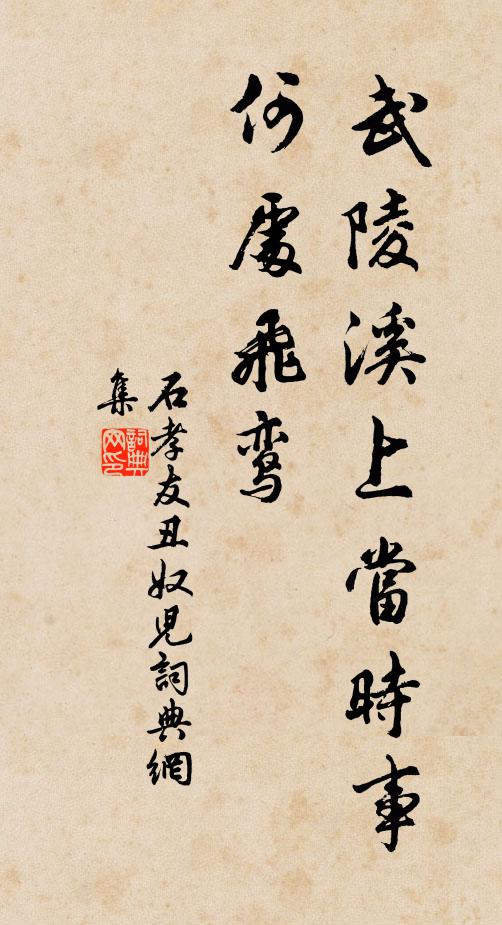 武陵溪上當時事
何處飛鸾
石孝友丑奴児詞典網
集
詞典
网印